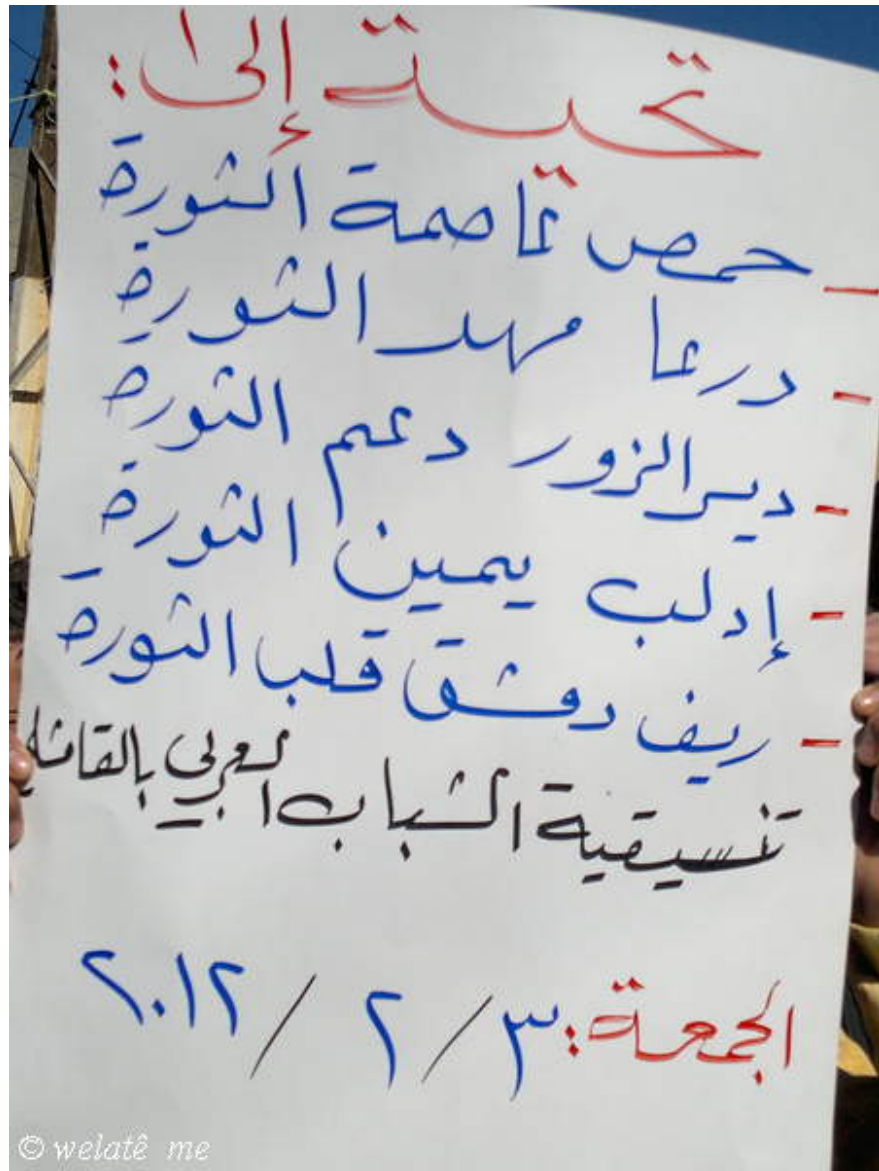 تحية إلى:
- حمص عاصمة الثورة
- درعا مهد الثورة
- ديرالزور دعم الثورة
- إدلب يمين الثورة
- ريف دمشق قلب الثورة
تنسيقية الشباب العربي
الجمعة: ٣ / ٢ / ٢٠١٢
© welatê me